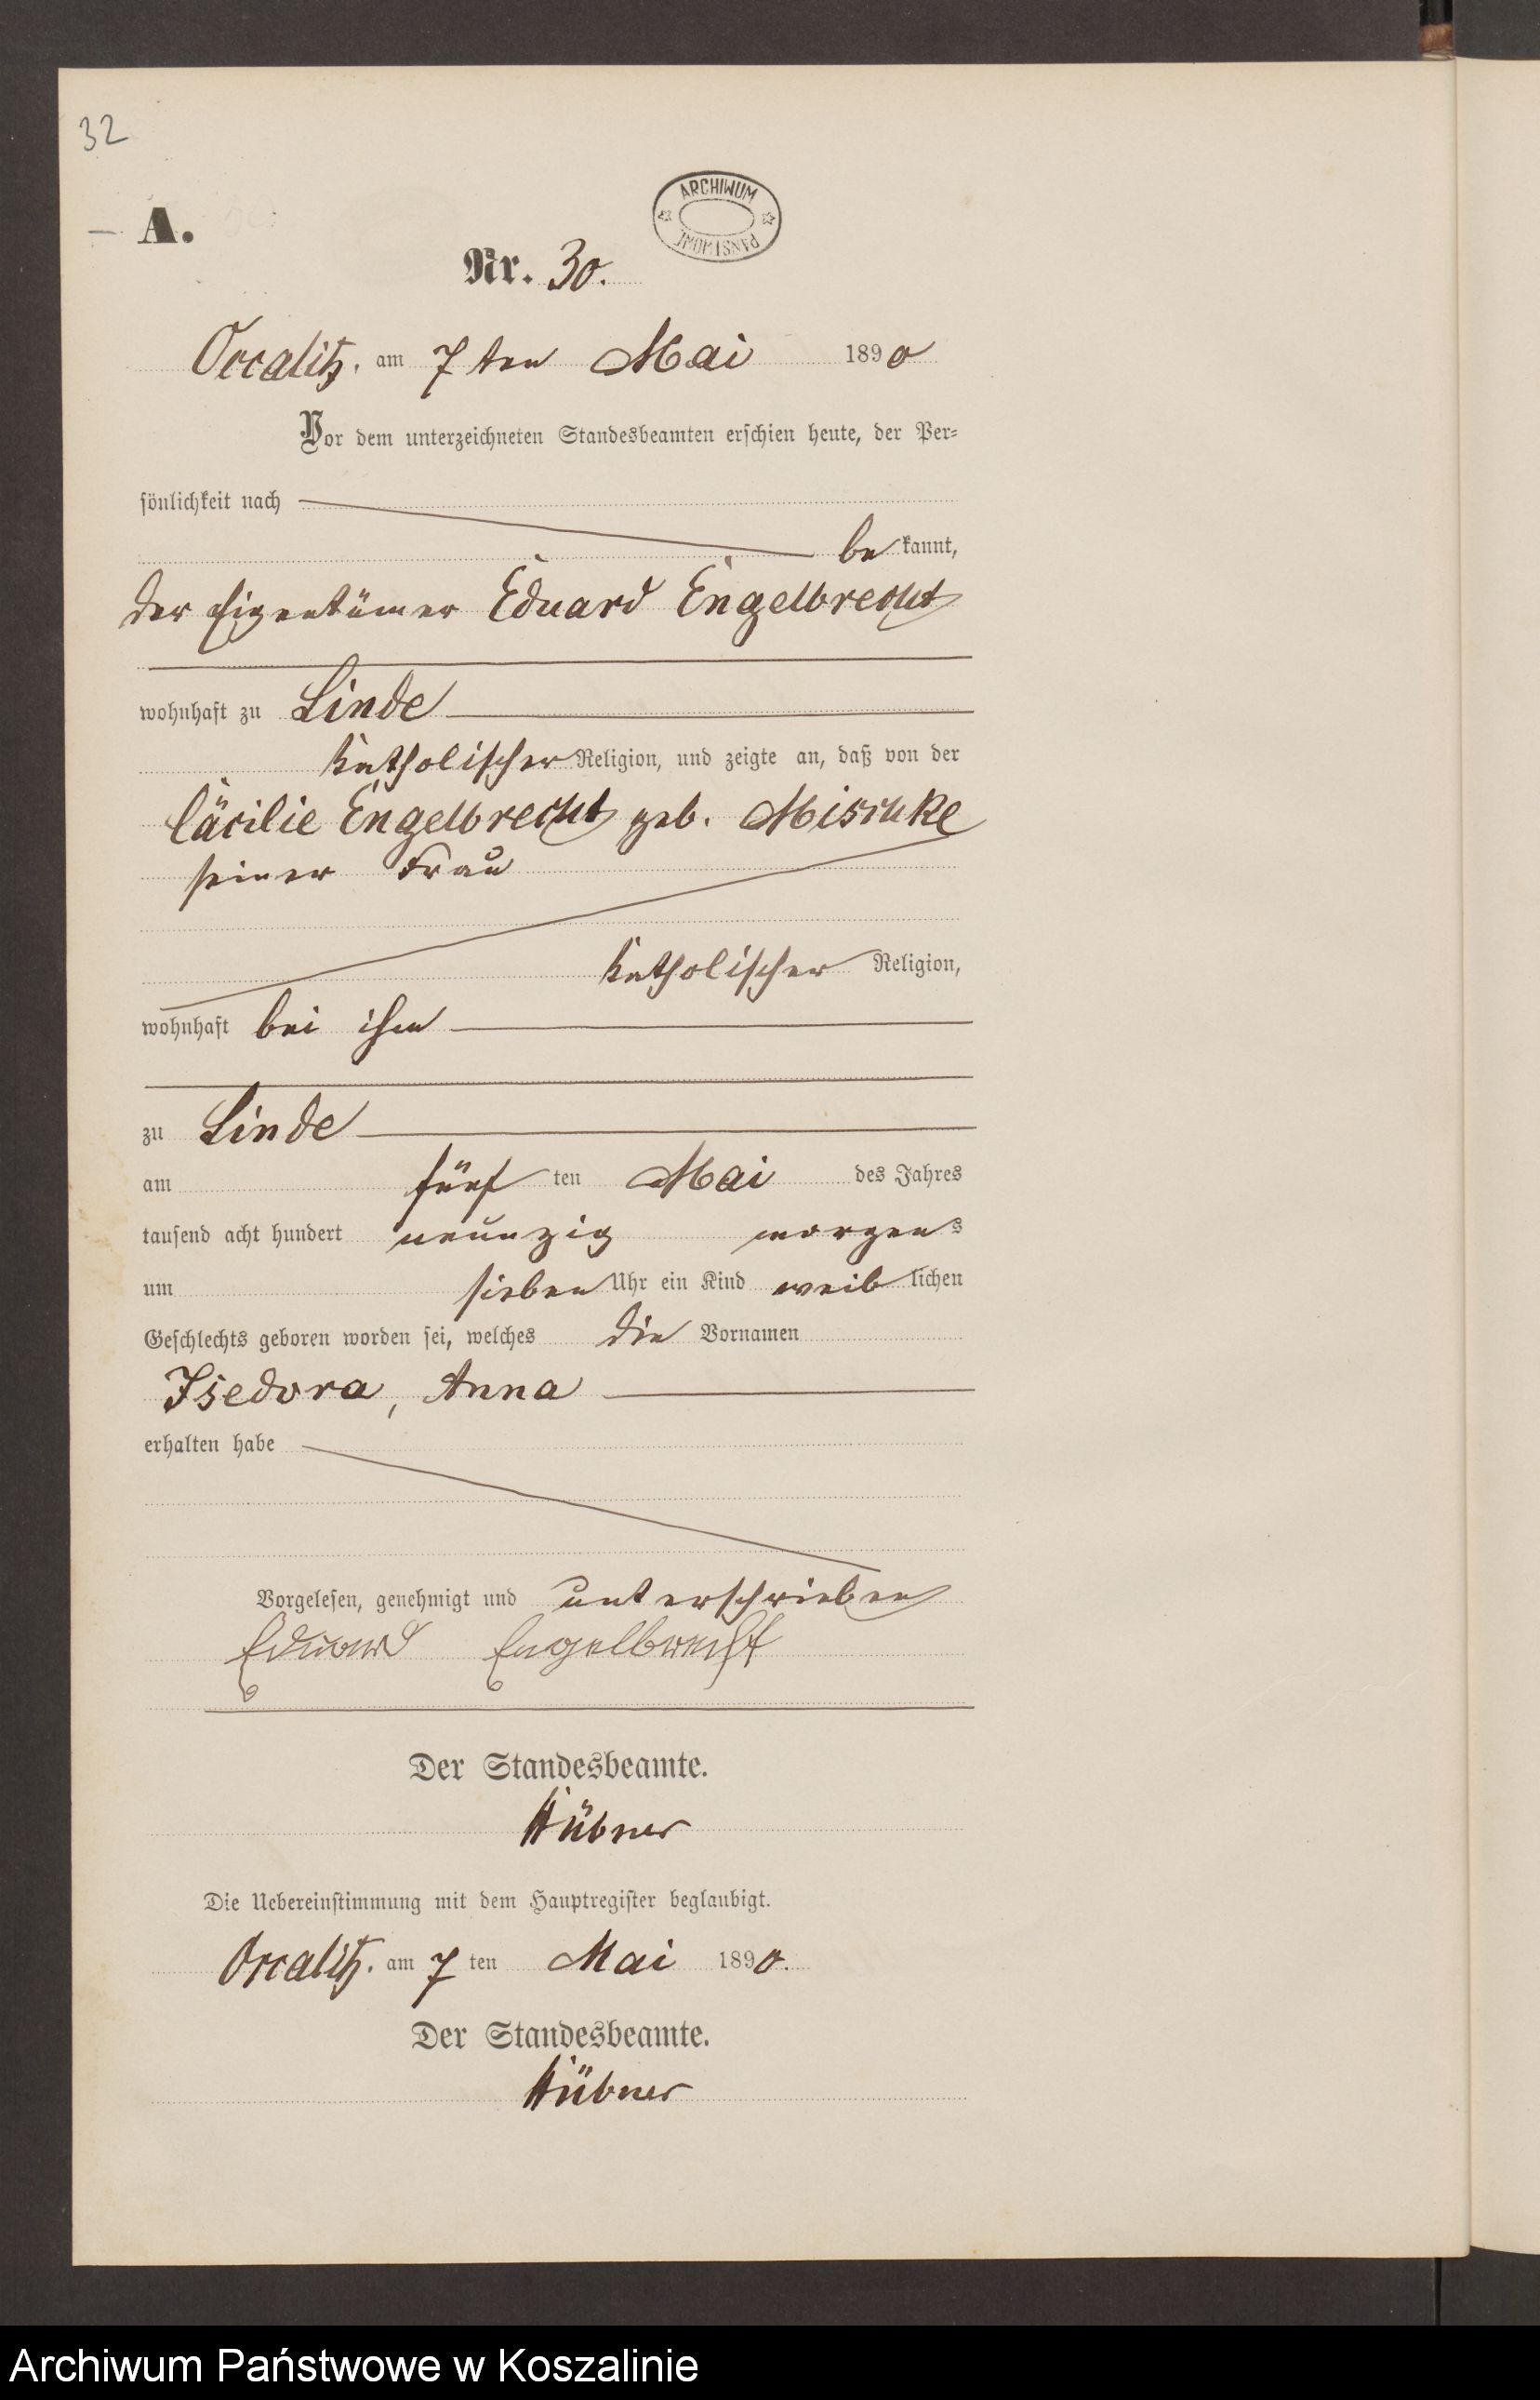 32
ARCHIWUM PAŃSTWOWE
A.
Nr. 30.
Occalitz. am 7 ten Mai 1890
Vor dem unterzeichneten Standesbeamten erschien heute, der Per-
sönlichkeit nach
be kannt,
der Eigentümer Eduard Engelbrecht
wohnhaft zu Linde
katholischer Religion, und zeigte an, daß von der
Cäcilie Engelbrecht geb. Mischke
seiner Frau
katholischer Religion,
wohnhaft bei ihm
zu Linde
am fünf ten Mai des Jahres
tausend acht hundert neunzig morgens
um sieben Uhr ein Kind weib lichen
Geschlechts geboren worden sei, welches die Vornamen
Isedora, Anna
erhalten habe
Vorgelesen, genehmigt und unterschrieben
Eduard Engelbrecht
Der Standesbeamte.
Hübner
Die Uebereinstimmung mit dem Hauptregister beglaubigt.
Occalitz. am 7 ten Mai 1890.
Der Standesbeamte.
Hübner
Archiwum Państwowe w Koszalinie